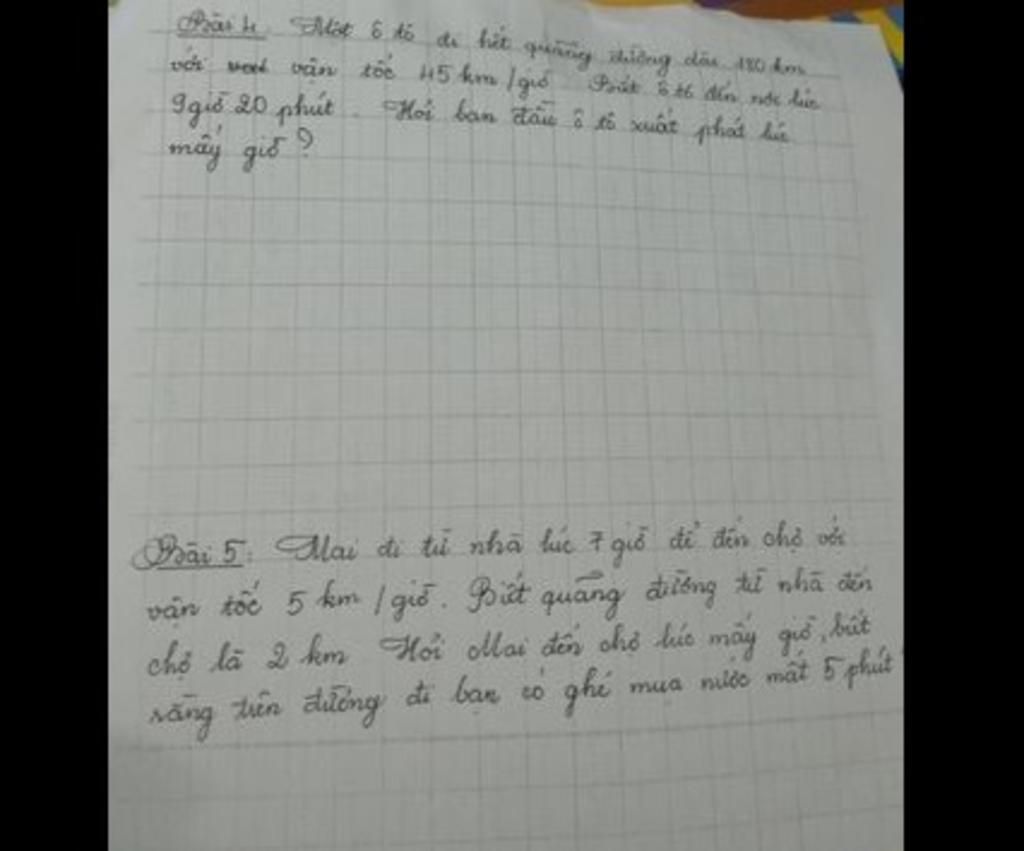 Bài 4. Một ô tô đi hết quãng đường dài 180 km
với vận tốc 45 km/giờ Biết ô tô đến nơi lúc
9 giờ 20 phút. Hỏi ban đầu ô tô xuất phát lúc
mấy giờ?
Bài 5: Mai đi từ nhà lúc 7 giờ để đến chợ với
vận tốc 5 km/giờ. Biết quãng đường từ nhà đến
chợ là 2 km Hỏi Mai đến chợ lúc mấy giờ, biết
rằng trên đường đi bạn có ghé mua nước mất 5 phút